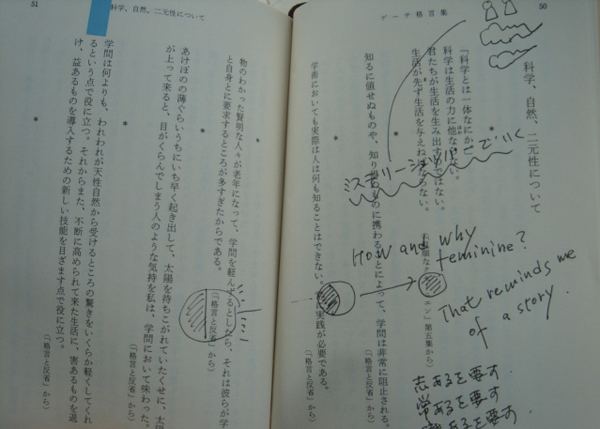 50
ゲーテ格言集
科学、自然、二元性について
「科学とは一体なにか。
科学は生活の力に他な
君たちが生活を生み出すのではない。
生活が先ず生活を与えねばならない。」
第五集から）
知るに値せぬものや、知り得ぬものに携わることによって、学問は非常に阻止される。
（「格言と反省」から）
学術においても実際は人は何も知ることはできない。常に実践が必要である。
（「格言と反省」から）
How and why
feminine?
That reminds me
of a story.
志あるを要す.
常あるを要す
あるを要す
51
科学、自然、二元性について
物のわかった賢明な人々が老年になって、学問を軽んずるとしたら、それは彼らが学
と自身とに要求するところが多すぎたからである。
（「格言と反省」から）
あけぼのの薄ぐらいうちにいち早く起き出して、太陽を待ちこがれていたくせに、太
が上って来ると、目がくらんでしまう人のような気持を私は、学問において味わった。
（「格言と反省」から）
学問は何よりも、われわれが天性自然から受けるところの驚きをいくらか軽くしてくれ
るという点で役に立つ。それからまた、不断に高められて来た生活に、害あるものを退
け、益あるものを導入するための新しい技能を目ざます点で役に立つ。
（「格言と反省」から）